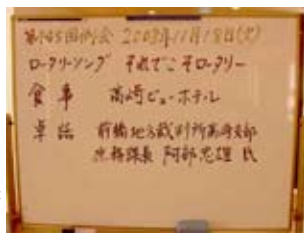 第1145回例会 2003年11月18日(火)
ロータリーソング それでこそロータリー
食事 高崎ビューホテル
卓話 前橋地方裁判所高崎支部
庶務課長 阿部忠雄 氏